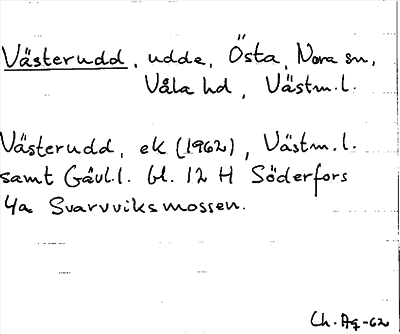 Västerudd, udde, Östa, Nora sn,
Våla hd, Västm.l.
Västerudd, ek (1962), Västm.l.
samt Gävl.l. bl. 12 H Söderfors
4a Svarvviksmossen.
Ch. Ag-62